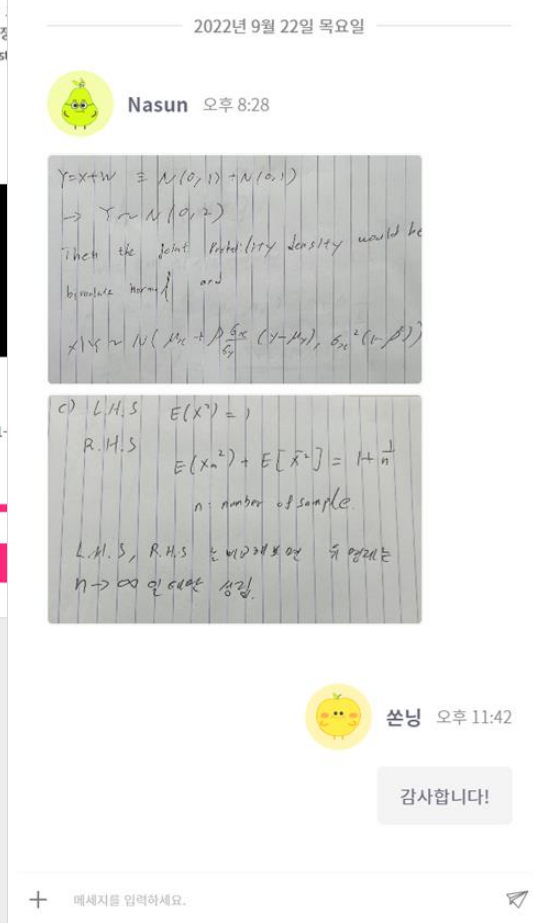 2022년 9월 22일 목요일
Nasun 오후 8:28
Y=X+W ≡ N(0,1)+N(0,1)
→ Y~N(0,2)
Then the joint density would be
and
X|Y ~ N(μx + ρ σx/σy (Y-μy), σx²(1-ρ²))
c) L.H.S E(X²) = 1
R.H.S
E(Xn²) + E[X̄²] = 1+ 1/n
n: number of sample.
L.H.S, R.H.S 를 비교해보면 위 명제는
n→∞ 일 때만 성립.
쏜닝 오후 11:42
감사합니다!
메세지를 입력하세요.